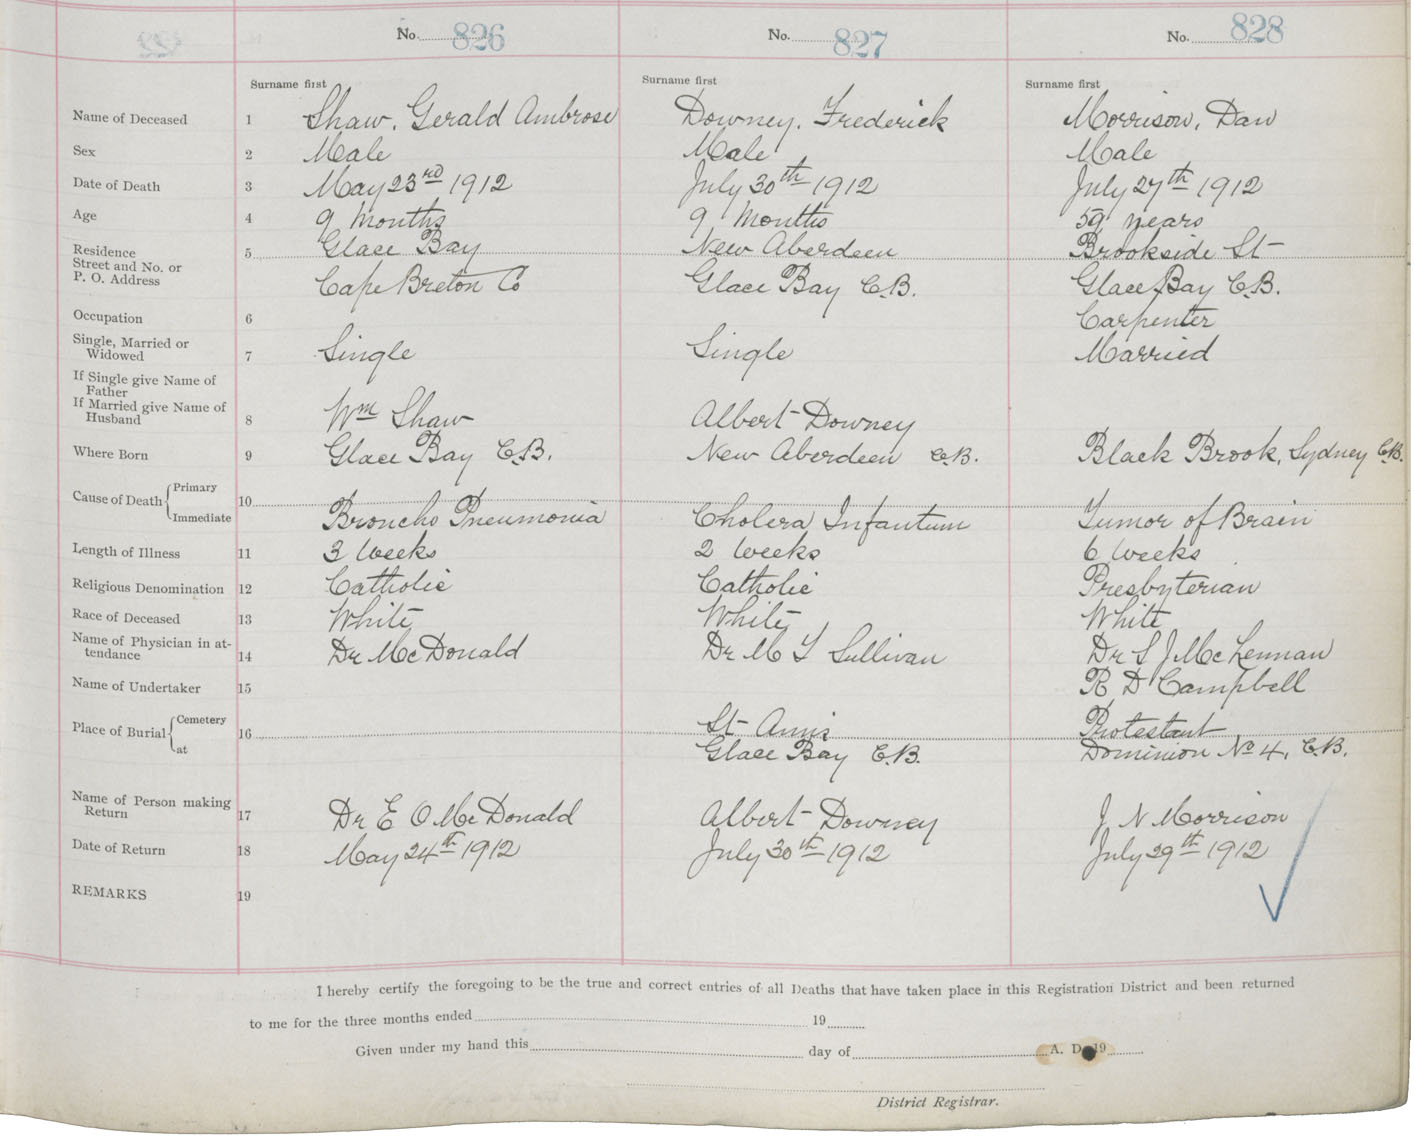 No. 826 No. 827 No. 828
Surname first Surname first Surname first
Name of Deceased 1 Shaw, Gerald Ambrose Downey, Frederick Morrison, Dan
Sex 2 Male Male Male
Date of Death 3 May 23rd 1912 July 30th 1912 July 27th 1912
Age 4 9 Months 9 Months 59 years
Residence 5 Glace Bay New Aberdeen Brookside St
Street and No. or
P. O. Address Cape Breton Co Glace Bay C.B. Glace Bay C.B.
Occupation 6 Carpenter
Single, Married or
Widowed 7 Single Single Married
If Single give Name of
Father
If Married give Name of
Husband 8 Wm Shaw Albert Downey
Where Born 9 Glace Bay C.B. New Aberdeen C.B. Black Brook, Sydney C.B.
Cause of Death Primary 10
Immediate Broncho Pneumonia Cholera Infantum Tumor of Brain
Length of Illness 11 3 Weeks 2 Weeks 6 Weeks
Religious Denomination 12 Catholic Catholic Presbyterian
Race of Deceased 13 White White White
Name of Physician in at-
tendance 14 Dr McDonald Dr M T Sullivan Dr S J McLennan
Name of Undertaker 15 R D Campbell
Place of Burial Cemetery 16 St Anns Protestant
at Glace Bay C.B. Dominion No 4, C.B.
Name of Person making
Return 17 Dr E O McDonald Albert Downey J N Morrison
Date of Return 18 May 24th 1912 July 30th 1912 July 29th 1912
REMARKS 19
I hereby certify the foregoing to be the true and correct entries of all Deaths that have taken place in this Registration District and been returned
to me for the three months ended 19
Given under my hand this day of A. D. 19
District Registrar.